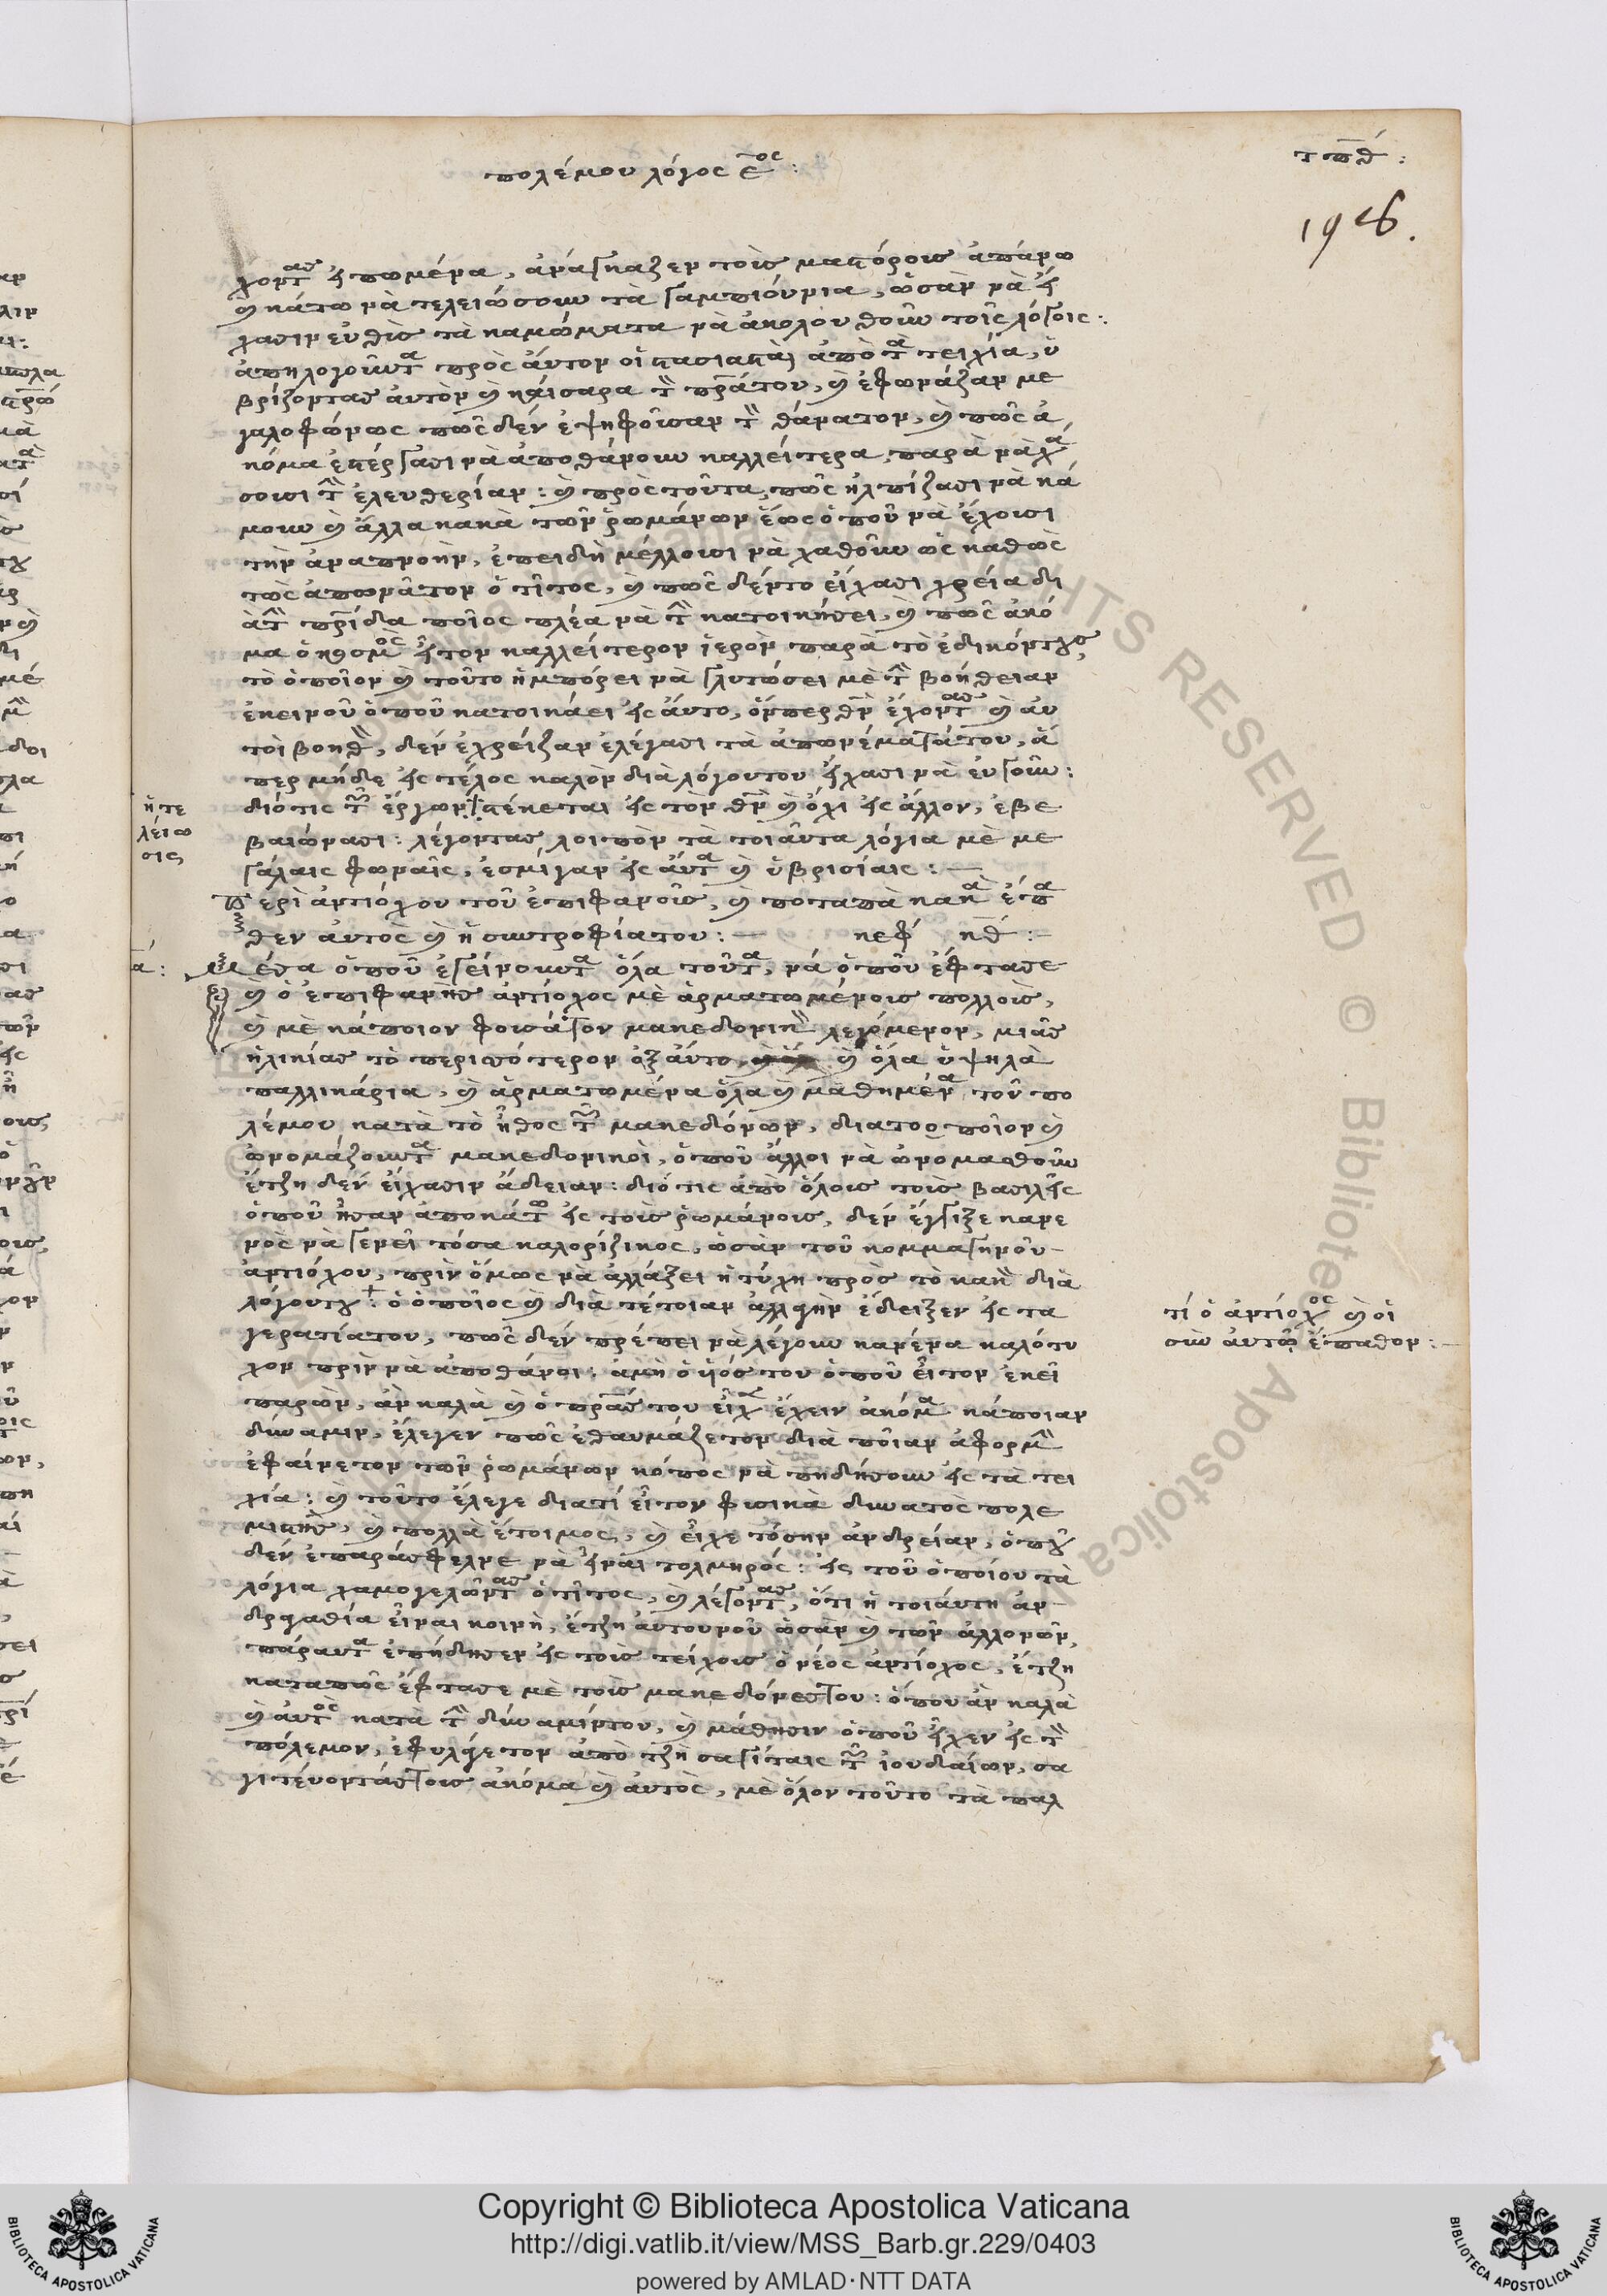 πολέμου λόγος ε̄ος :
τπθ :
196.
χοντας εἰπωμένα, ἀνάγκαζεν τοὺς μαστόρους ἀπάνω
καὶ κάτω νὰ τελειώσουν τὰ γαμπιούνια, ὡσὰν νὰ εἶ
χασιν εὐθὺς τὰ καμώματα νὰ ἀκολουθοῦν τοῖς λόγοις :
ἀπηλογοῦντα πρὸς αὐτὸν οἱ στασιασταὶ ἀπὸ τὰ τειχία, ὑ
βρίζοντας αὐτὸν καὶ καίσαρα τὸν πράτου, καὶ ἐφωνάζαν με
γαλοφώνως πῶς δὲν ἐψηφοῦσαν τὸν θάνατον, καὶ πῶς ἀ
κόμα νὰ ἀποθάνουν καλλείτερα, παρὰ νὰ χά
σουσι τὴν ἐλευθερίαν : καὶ πρὸς τοῦτα, πῶς ἠλπίζασι νὰ κά
μουν καὶ ἄλλα κακὰ τῶν ῥωμάνων ἕως ὁποῦ νὰ ἔχουσι
τὴν ἀναπνοὴν, ἐπειδὴ μέλλουσι νὰ χαθοῦν ὡς καθὼς
τὼς ἀπωνᾶτον ὁ τῖτος, καὶ πῶς δέντο εἴχασι χρεία δι
ὰ τὴν πρίδα ποῖος πλέα νὰ τὴν κατοικήσει, καὶ πῶς ἀκό
μα ὁ κόσμος εἶτον καλλείτερον ἱερὸν παρὰ τὸ ἐδικόντους
τὸ ὁποῖον καὶ τοῦτο ἠμπόρει νὰ γλυτώσει μὲ τὴν βοήθειαν
ἐκεινοῦ ὁποῦ κατοικάει εἰς αὐτο, ὅνπερ θν̄ ἔχοντας καὶ αὐ
τοὶ βοηθὸν, δὲν ἐχρείζαν ἐλέγασι τὰ ἀπωνέματάτου, ἅ
περ μήδε εἰς τέλος καλὸν διὰ λόγουτου εἴχασι νὰ εὐγοῦν :
διότις τῶν ἔργων στέκεται εἰς τὸν θν̄ καὶ ὄχι εἰς ἄλλον, ἐβε
ἡ τε
λείω
σις
βαιώνασι : λέγοντας λοιπὸν τὰ τοιαῦτα λόγια μὲ με
γάλαις φωναῖς, ἐσμίγαν εἰς αὐτὰ καὶ ὑβρισίαις : —
Περὶ ἀντιόχου τοῦ ἐπιφανοῦς, καὶ ποταπὰ κακὰ ἔπα
θεν αὐτὸς καὶ ἡ συντροφίατου : — κεφ κθ : —
α : Μέσα ὁποῦ ἐγείνουντα ὅλα τοῦτα, νά ὁποῦ ἔφτασε
καὶ ὁ ἐπιφανὴς ἀντίοχος μὲ ἁρματωμένους πολλοὺς,
καὶ μὲ κάποιον φουσάτον μακεδονικὸν λεγόμενον, μιᾶς
ἡλικίας τὸ περισσότερον ὀξ αὐτο, καὶ ὅλα ὑψηλὰ
παλλικάρια, καὶ ἁρματωμένα ὅλα καὶ μαθημένα τοῦ πο
λέμου κατὰ τὸ ἦθος τῶν μακεδόνων, διατοο ποῖον καὶ
ὠνομάζουντα μακεδονικοὶ, ὁποῦ ἄλλοι νὰ ὠνομασθοῦν
ἔτζη δὲν εἴχασιν ἄδειαν : διότις ἀπὸ ὅλους τοὺς βασιλεῖς
ὁποῦ ἦσαν ἀποκάτω εἰς τοὺς ῥωμάνους, δὲν ἔγγιξε κανε
νὸς νὰ γενεῖ τόσα καλορίζικος, ὡσὰν τοῦ κομμαγηνοῦ –
ἀντιόχου, πρὶν ὅμως νὰ ἀλλάξει ἡ τύχη πρὸς τὸ κακὸν διὰ
λόγουτου : ὁ ὁποῖος καὶ διὰ τέτοιαν ἀλλαγὴν ἔδειξεν εἰς τα
τί ὁ ἀντίοχος καὶ οἱ
σὺν αὐτῷ ἔπαθον : —
γερατίατου, πῶς δὲν πρέπει νὰ λέγουν κανένα καλότυ
χον πρὶν νὰ ἀποθάνοι : ἀμὴ ὁ ὑιόςτου ὁποῦ εἶτον ἐκεῖ
παρὼν, ἂν καλὰ καὶ ὁ πρᾱστου εἶχεν ἔχειν ἀκόμα κάποιαν
δύναμιν, ἔλεγεν πῶς ἐθαυμάζετον διὰ ποίαν ἀφορμὴν
ἐφαίνετον τῶν ῥωμάνων κόπος νὰ πηδήσουν εἰς τὰ τει
χία : καὶ τοῦτο ἔλεγε διατί εἶτον φυσικὰ δυνατὸς πολε
μιστὴς, καὶ πολλὰ ἕτοιμος, καὶ εἶχε τόσην ἀνδρείαν, ὁποῦ
δὲν ἐπαράσφελνε νὰ εἶναι τολμηρός : εἰς τοῦ ὁποίου τὰ
λόγια χαμογελῶντας ὁ τῖτος, καὶ λέγοντας, ὅτι ἡ τοιάυτη ἀν
δραγαθία εἶναι κοινὴ, ἔτζη αὐτουνοῦ ὡσὰν καὶ τῶν ἀλλονῶν,
πάραυτα ἐπήδησεν εἰς τοὺς τείχους ὁ νέος ἀντίοχος, ἔτζη
καταπῶς ἔφτασε μὲ τοὺς μακεδόνεςτου : ὁπου ἂν καλὰ
καὶ αὐτὸς κατὰ τὴν δύναμίντου, καὶ μάθησιν ὁποῦ εἶχεν εἰς τὸν
πόλεμον, ἐφυλάγετον ἀπὸ τζῆ σαγίταις τῶν ἰουδαίων, σα
γιτέυοντάςτους ἀκόμα καὶ αὐτὸς, μὲ ὅλον τοῦτο τὰ παλ
Copyright © Biblioteca Apostolica Vaticana
http://digi.vatlib.it/view/MSS_Barb.gr.229/0403
powered by AMLAD·NTT DATA